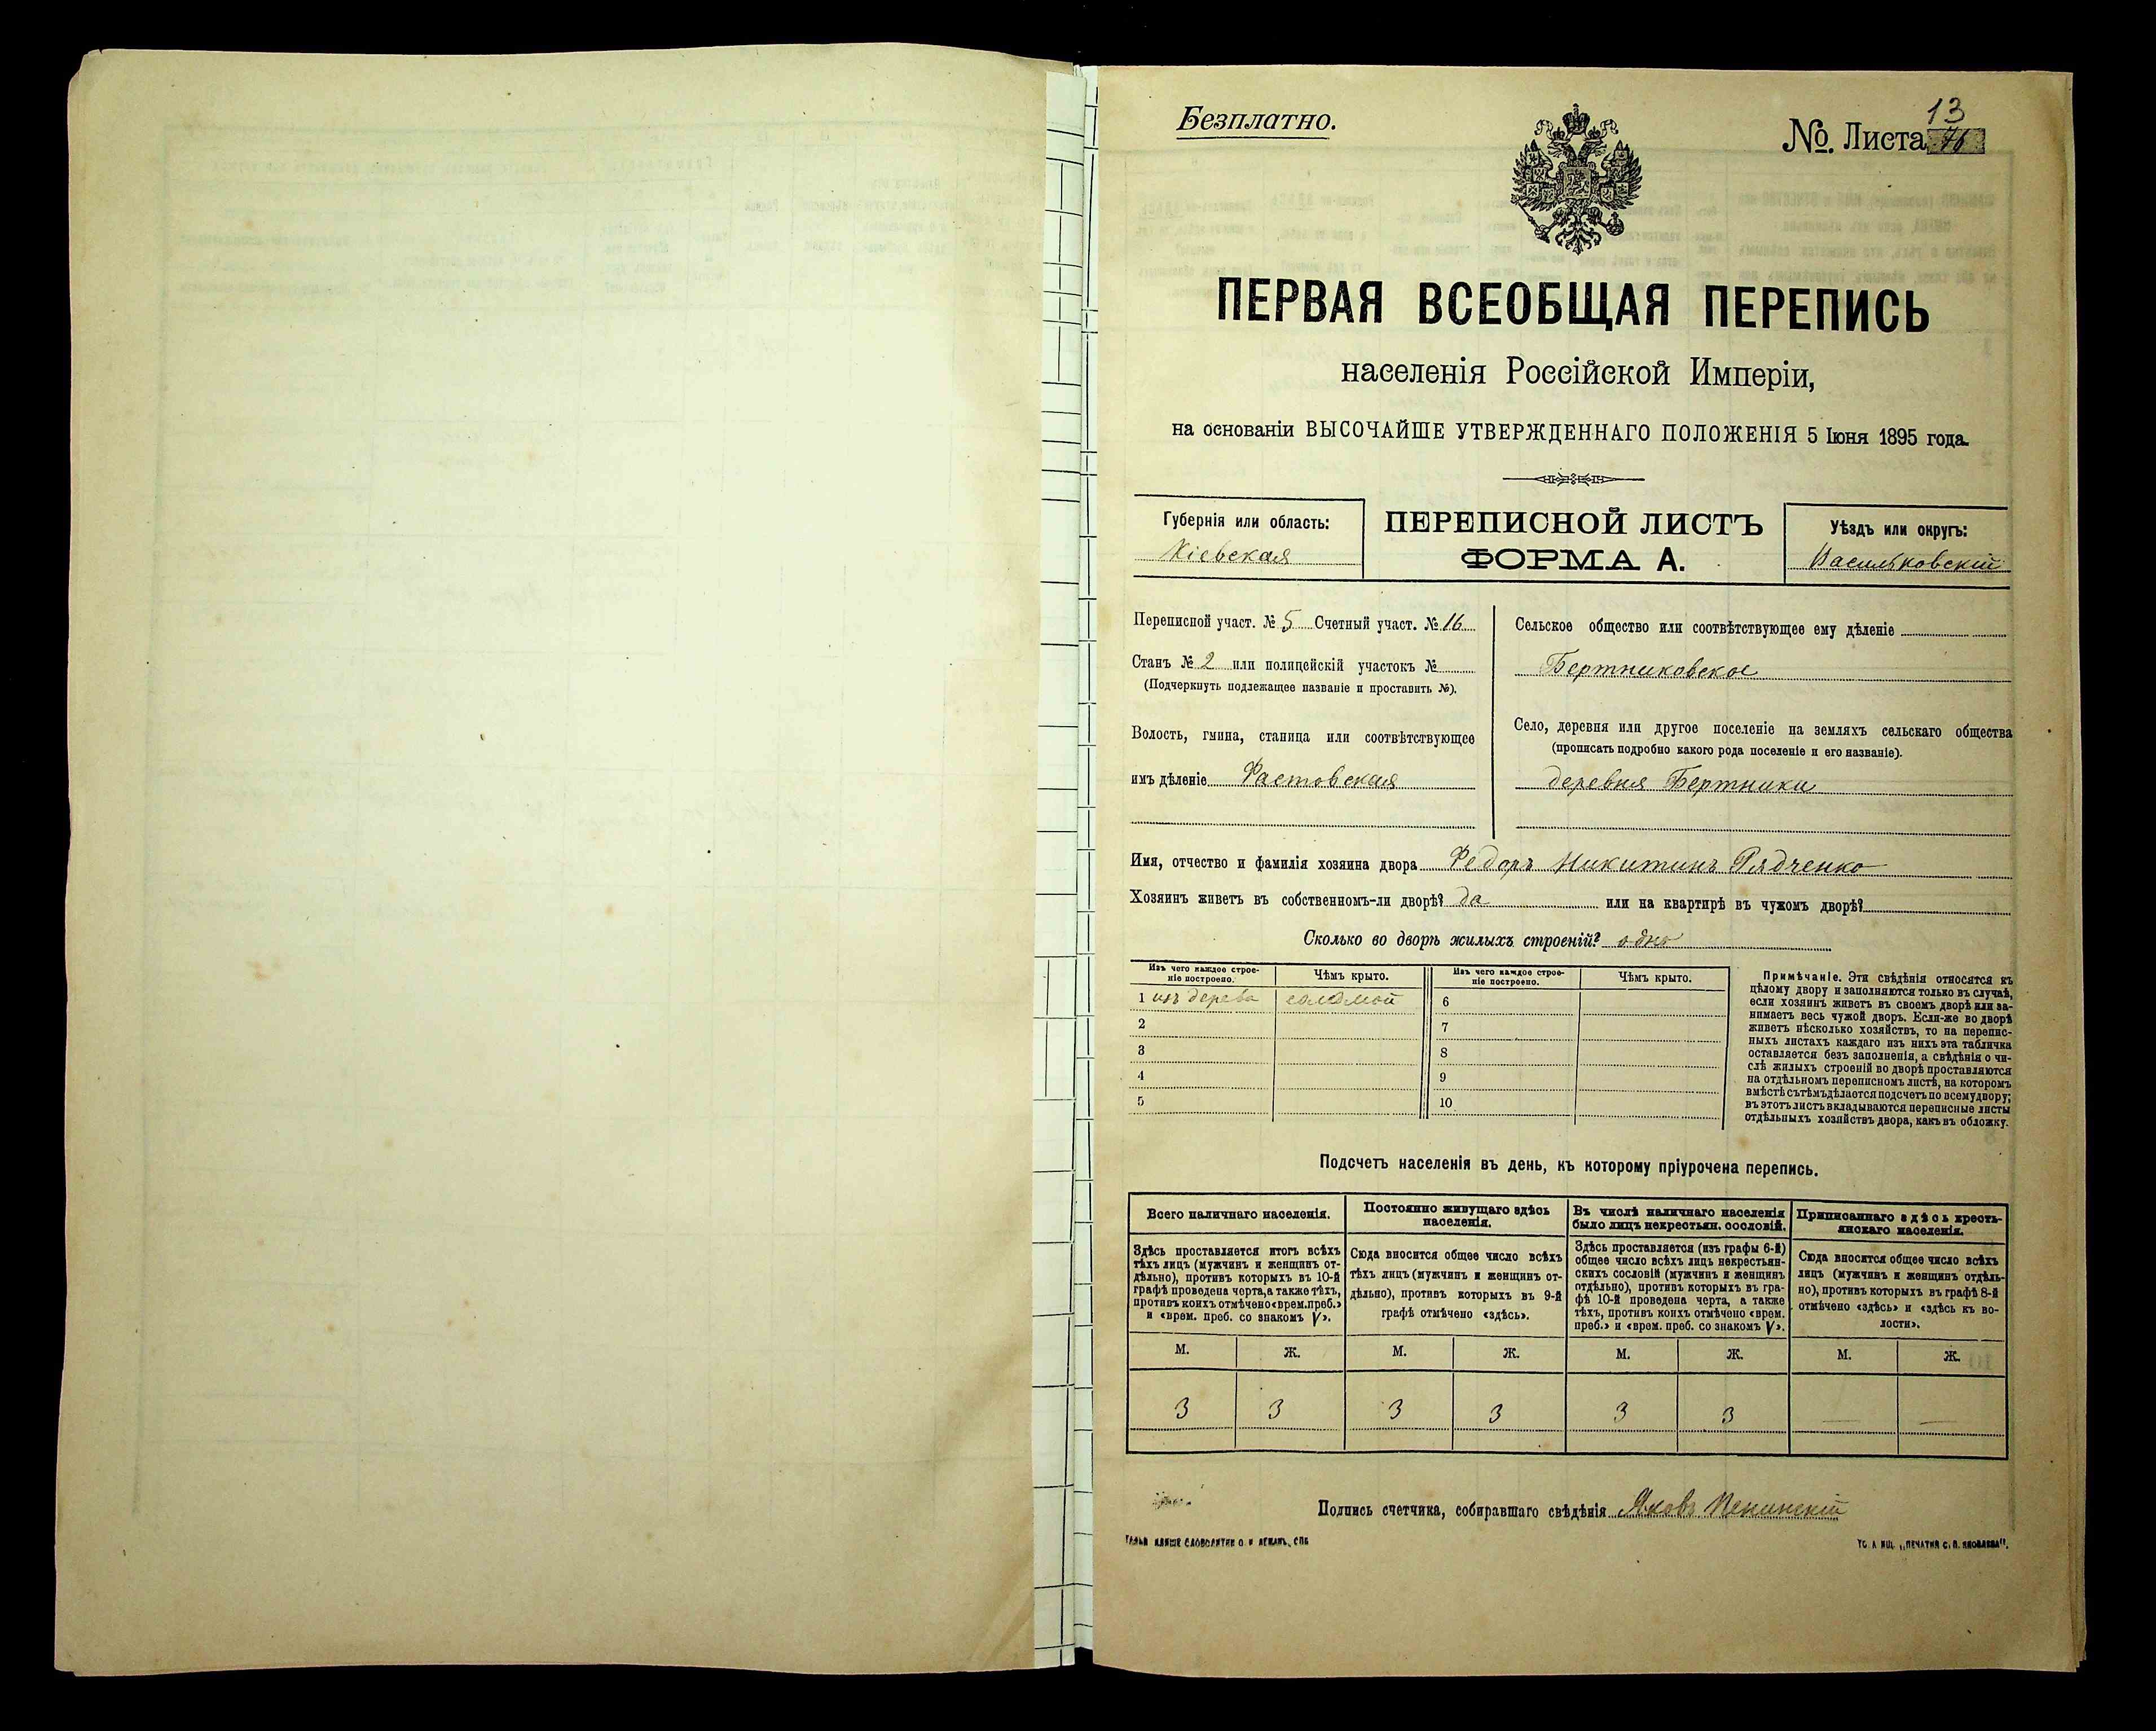 Безплатно.
13
№. Листа 76
ПЕРВАЯ ВСЕОБЩАЯ ПЕРЕПИСЬ
населенія Россійской Имперіи,
на основаніи ВЫСОЧАЙШЕ УТВЕРЖДЕННАГО ПОЛОЖЕНІЯ 5 Іюня 1895 года.
Губернія или область:
Кіевская
ПЕРЕПИСНОЙ ЛИСТЪ
ФОРМА А.
Уѣздъ или округъ:
Васильковскій
Переписной участ. № 5 Счетный участ. № 16
Станъ № 2 или полицейскій участокъ №
(Подчеркнуть подлежащее названіе и проставить №).
Волость, гмина, станица или соотвѣтствующее
имъ дѣленіе Фастовская
Сельское общество или соотвѣтствующее ему дѣленіе
Бертниковское
Село, деревня или другое поселеніе на земляхъ сельскаго общества
(прописать подробно какого рода поселеніе и его названіе).
деревня Бертники
Имя, отчество и фамилія хозяина двора Федоръ Никитинъ Рядченко
Хозяинъ живетъ въ собственномъ-ли дворѣ? да или на квартирѣ въ чужомъ дворѣ?
Сколько во дворѣ жилыхъ строеній? одно
Изъ чего каждое строе-
ніе построено.
Чѣмъ крыто.
Изъ чего каждое строе-
ніе построено.
Чѣмъ крыто.
1 изъ дерева соломой 6
2 7
3 8
4 9
5 10
Примѣчаніе. Эти свѣдѣнія относятся къ
цѣлому двору и заполняются только въ случаѣ,
если хозяинъ живетъ въ своемъ дворѣ или за-
нимаетъ весь чужой дворъ. Если-же во дворѣ
живетъ нѣсколько хозяйствъ, то на перепис-
ныхъ листахъ каждаго изъ нихъ эта табличка
оставляется безъ заполненія, а свѣдѣнія о чи-
слѣ жилыхъ строеній во дворѣ проставляются
на отдѣльномъ переписномъ листѣ, на которомъ
вмѣстѣ съ тѣмъ дѣлается подсчетъ по всему двору;
въ этотъ листъ вкладываются переписные листы
отдѣльныхъ хозяйствъ двора, какъ въ обложку.
Подсчетъ населенія въ день, къ которому пріурочена перепись.
Всего наличнаго населенія.
Здѣсь проставляется итогъ всѣхъ
тѣхъ лицъ (мужчинъ и женщинъ от-
дѣльно), противъ которыхъ въ 10-й
графѣ проведена черта, а также тѣхъ,
противъ коихъ отмѣчено «врем. преб.»
и «врем. преб. со знакомъ V».
Постоянно живущаго здѣсь
населенія.
Сюда вносится общее число всѣхъ
тѣхъ лицъ (мужчинъ и женщинъ от-
дѣльно), противъ которыхъ въ 9-й
графѣ отмѣчено «здѣсь».
Въ числѣ наличнаго населенія
было лицъ некрестьян. сословій.
Здѣсь проставляется (изъ графы 6-й)
общее число всѣхъ лицъ некрестьян-
скихъ сословій (мужчинъ и женщинъ
отдѣльно), противъ которыхъ въ гра-
фѣ 10-й проведена черта, а также
тѣхъ, противъ коихъ отмѣчено «врем.
преб.» и «врем. преб. со знакомъ V».
Приписаннаго здѣсь кресть-
янскаго населенія.
Сюда вносится общее число всѣхъ
лицъ (мужчинъ и женщинъ отдѣль-
но), противъ которыхъ въ графѣ 8-й
отмѣчено «здѣсь» и «здѣсь къ во-
лости».
М. Ж. М. Ж. М. Ж. М. Ж.
3 3 3 3 3 3 — —
Подпись счетчика, собиравшаго свѣдѣнія Яковъ